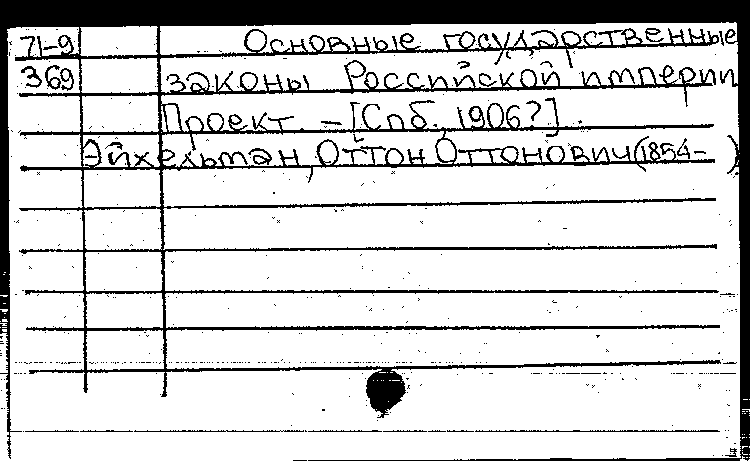 71-9 Основные государственные
369 законы Российской империи
Проект. – [Спб., 1906?].
Эйхельман, Оттон Оттонович (1854- )